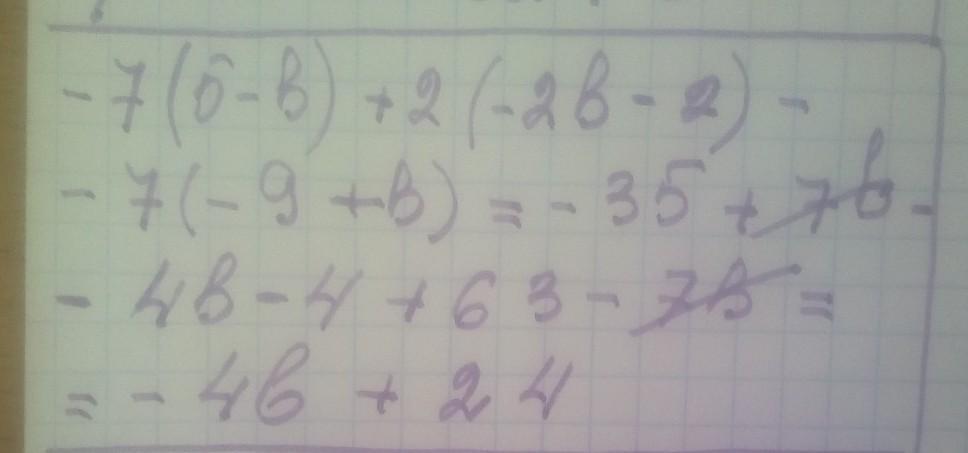 - 7(5-b) +2(-2b-2) -
- 7(-9+b) = - 35 + 7b -
- 4b - 4 + 63 - 7b =
= - 4b + 24